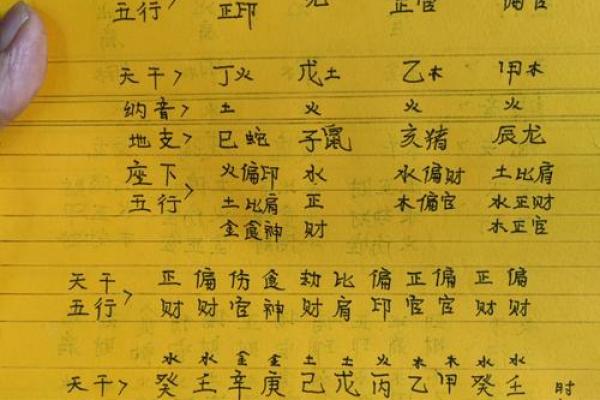 五行 正印 正官 偏官
天干> 丁火 戊土 乙木 甲木
纳音> 土 火 火 火
地支> 巳蛇 子鼠 亥猪 辰龙
座下 火偏印 水 水偏财 土比肩
五行> 土比肩 正 木偏官 水正财
金食神 财 木正官
天干 正 偏 伤 食 劫 比 偏 正 偏 正 偏
五行> 财 财 官 神 财 肩 印 官 官 财 财
水 水 金 金 土 土 火 木 木 水 水
天干> 癸 壬 辛 庚 己 戊 丙 乙 甲 癸 壬 时